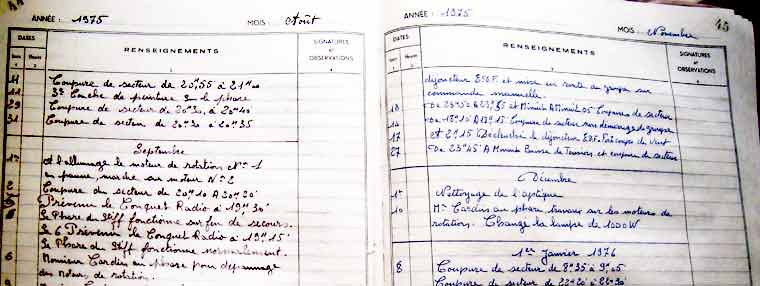 44
ANNÉE : 1975 MOIS : Août
DATES
RENSEIGNEMENTS
SIGNATURES
et
OBSERVATIONS
Jours Heures
11 Coupure de secteur de 20h55 à 21h00
11 3e Couche de peinture sur le phare
29 Coupure de secteur de 20h30, à 20h40
31 Coupure de secteur du 20h30 à 20h35
Septembre
1er et l'allumage le moteur de rotation No 1
en panne, marche au moteur No 2
2 Coupure du secteur de 20h10 A 20h20
Prévenu le Conquet Radio à 19h30
le Phare du Stiff fonctionne sur feu de secours.
le 6 Prévenu le Conquet Radio à 19h15
le Phare du Stiff fonctionne normalement.
6 Monsieur Cardin au phare pour dépannage
des Moteurs de rotation.
45
ANNÉE : 1975 MOIS : Novembre
DATES
RENSEIGNEMENTS
SIGNATURES
et
OBSERVATIONS
Jours Heures
disjoncteur E.D.F. et mise en route du groupe sur
commande manuelle.
13 De 23h50 A 23h55 et Minuit A Minuit 05 Coupures de secteur
14 De 18h10 A 19h15 Coupure de secteur non démarrage du groupe
17 A 2h15 Déclenché le disjoncteur E.D.F. Fort coups de Vent
27 De 23h45 A Minuit Baisse de Tension, et coupure du secteur
Décembre
1er Nettoyage de l'optique
10 Mr Cardin au phare, travaux sur les moteurs de
rotation. Change la lampe de 1000W
1er janvier 1976
8 Coupure de secteur de 8h35 à 9h05
Coupure de secteur de 22h20 à 22h30